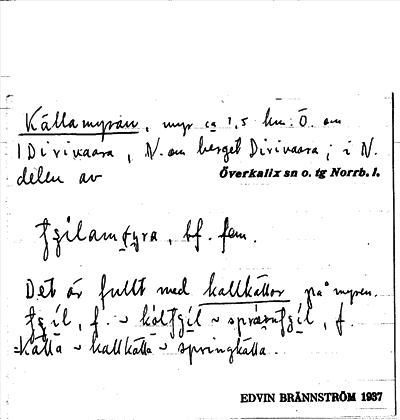 Källamyran, myr ca 1,5 km Ö. om
Divivaara, N. om berget Divivaara, i N.
delen av Överkalix sn o. tg Norrb. l.
bf. fem.
Det är fullt med kallkällor på myren.
f. ~ ~ f.
= källa ~ kallkälla ~ springkälla.
EDVIN BRÄNNSTRÖM 1937